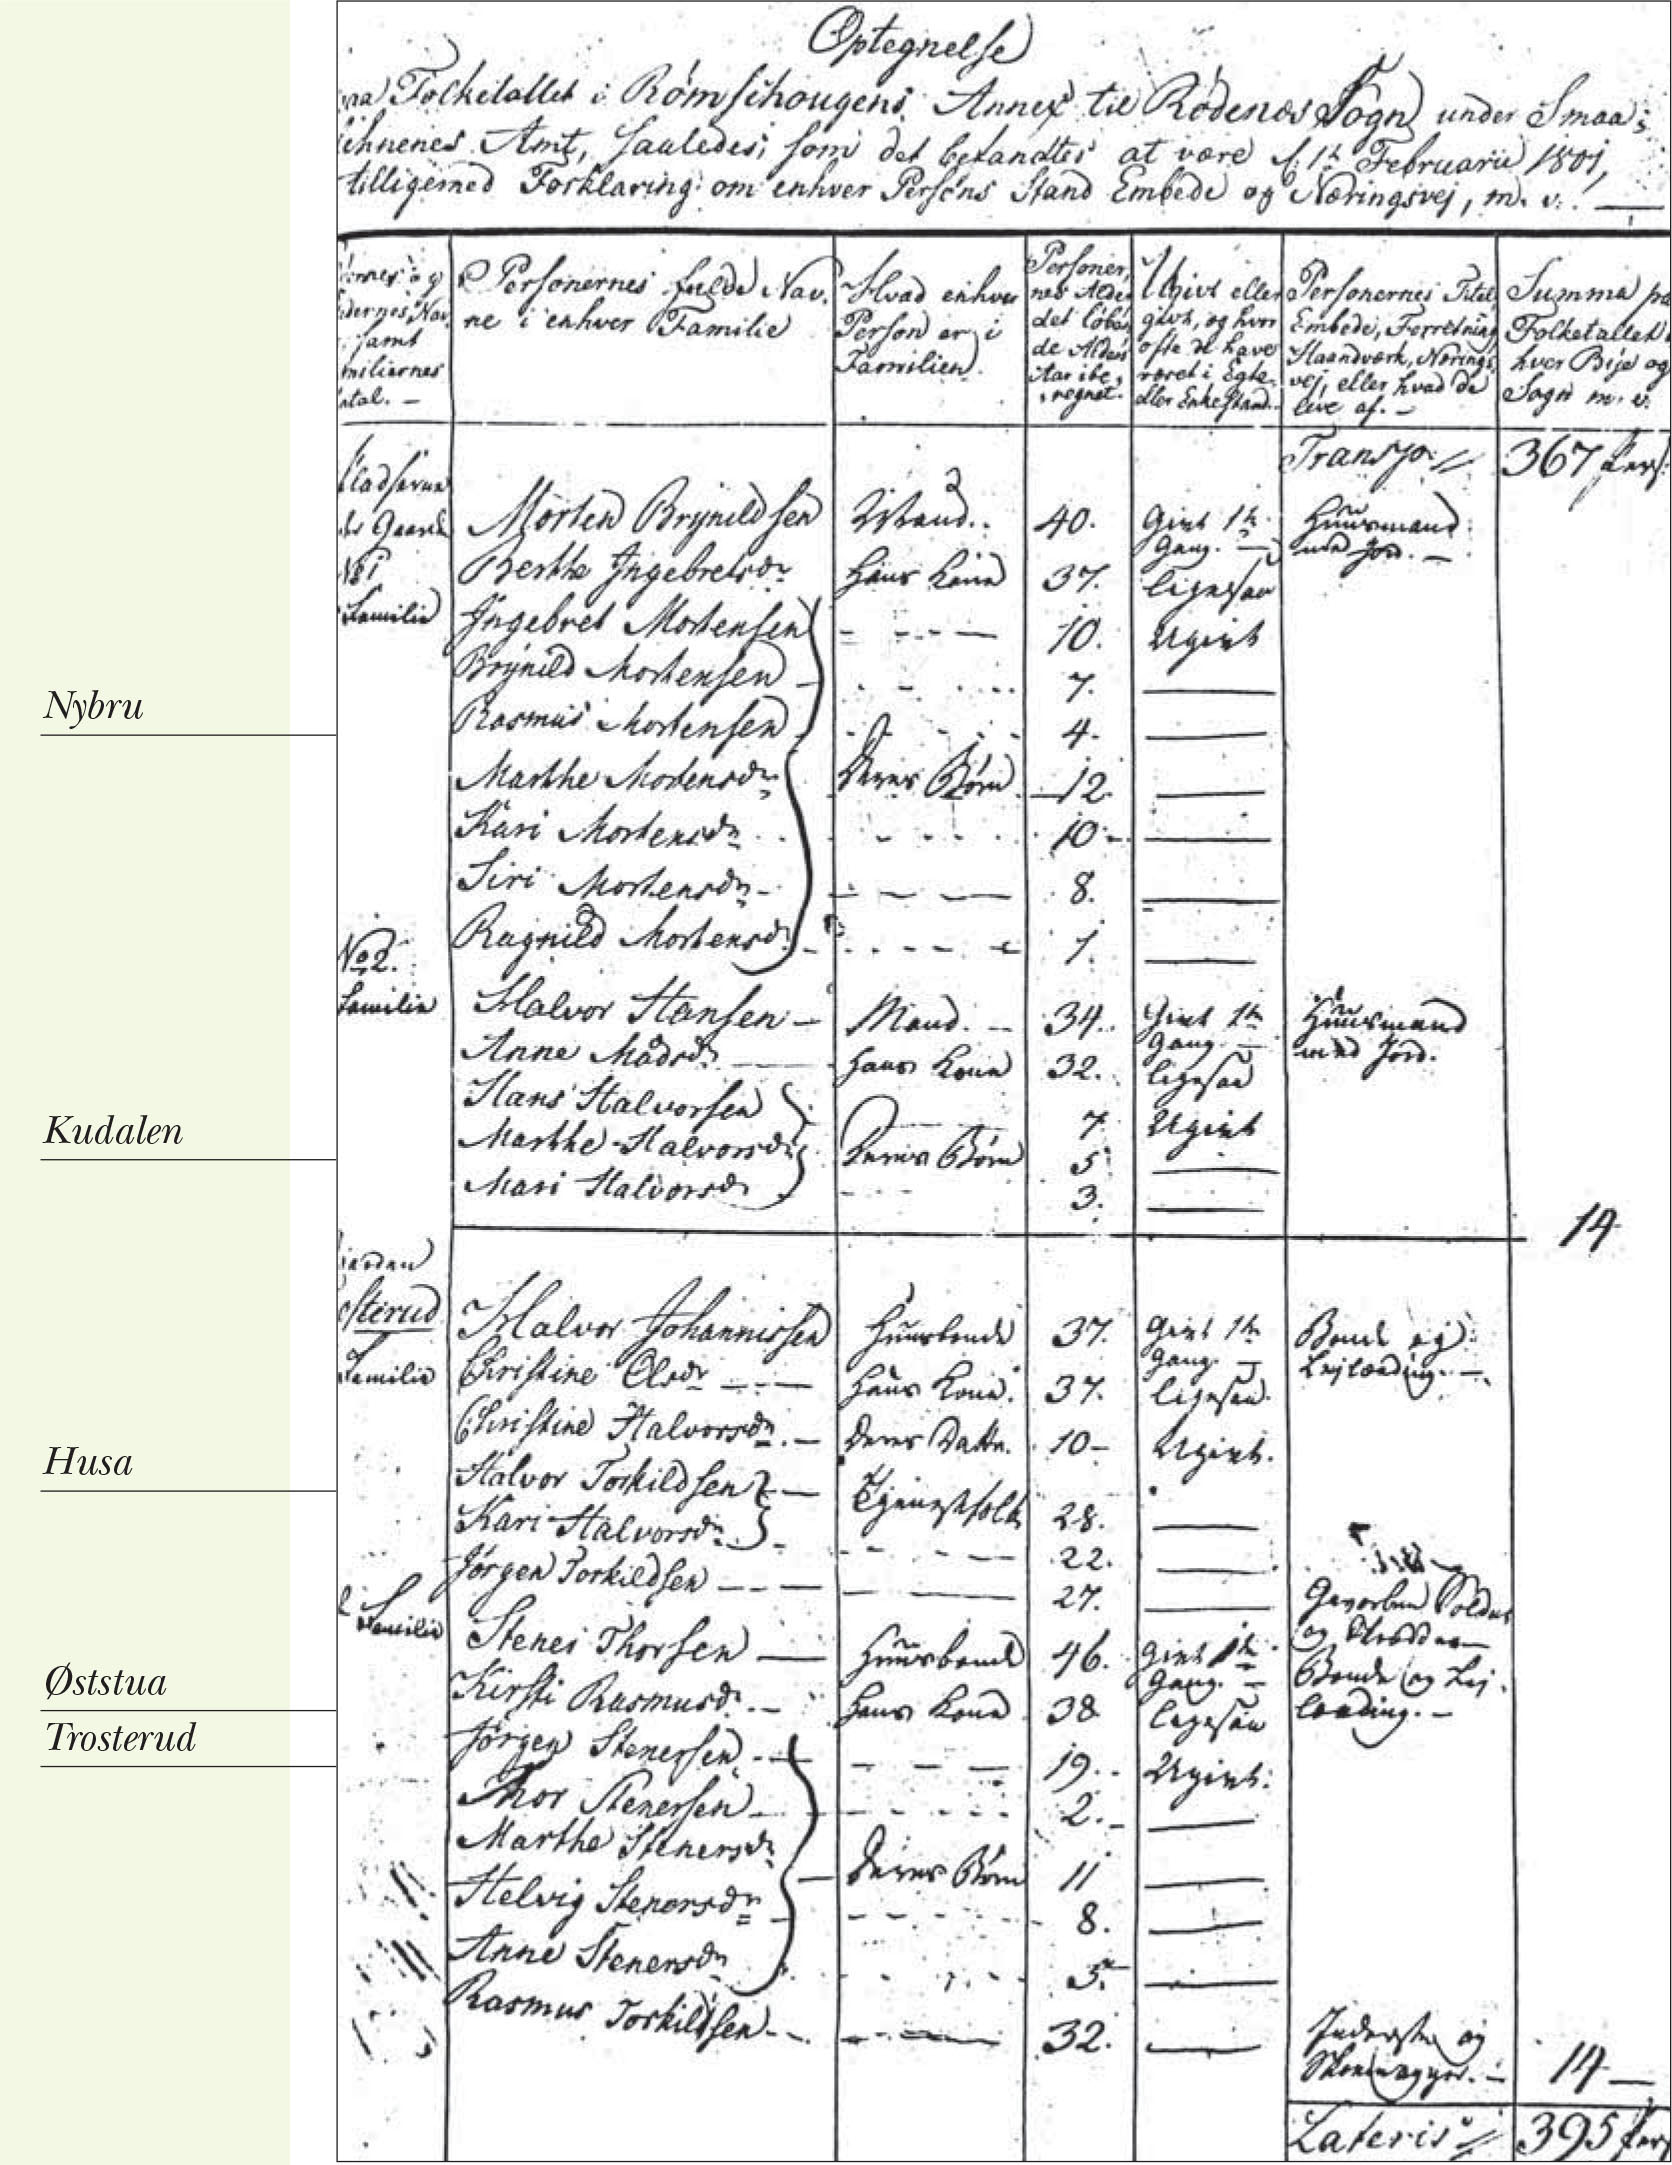 Optegnelse
Folketallet i Rømschougens Annex til Rødenæs Sogn under Smaa=
lehnenes Amt, saaledes, som det befandtes at være d. 1te Februarii 1801,
tilligemed Forklaring om enhver Persons Stand Embede og Næringsvej, m. v.
Personernes fulde Nav-
ne i enhver Familie
Hvad enhver
Person er i
Familien.
Personer-
nes Alder
det løben-
de Alders
Aar ibe-
regnet.
Ugivt eller
givt, og hvor
ofte de have
været i Egte
eller Enkestand.
Personernes Titel,
Embede, Forretning,
Haandværk, Nærings-
vej, eller hvad de
leve af. -
Summa paa
Folketallet i
hver Bye og
Sogn m. v.
Transp. 367 Pers.
No 1
Familie
Morten Brynildsen Mand.. 40. Givt 1te Gang. Huusmand med Jord. -
Berthe Ingebretsdr Hans Kone 37. ligesaa
Ingebret Mortensen 10. Ugivt
Brynild Mortensen 7.
Rasmus Mortensen 4.
Nybru
Marthe Mortensdr Deres Børn 12
Kari Mortensdr 10
Siri Mortensdr 8.
Ragnild Mortensdr 1.
No 2.
Familie
Halvor Hansen Mand. 34. Givt 1te Gang. Huusmand med Jord.
Anne Madsdr Hans Kone 32. ligesaa
Hans Halvorsen 7 Ugivt
Marthe Halvorsdr Deres Børn 5
Kudalen
Mari Halvorsdr 3.
14
Familie
Halvor Johannissen Huusbonde 37. Givt 1te Gang. Bonde og Lejlænding. -
Christine Olsdr Hans Kone. 37. ligesaa
Christine Halvorsdr Deres Datter. 10 Ugivt.
Halvor Torkildsen Tjenestfolk 28.
Husa
Kari Halvorsdr 22.
Jørgen Torkildsen 27. Gevorben Soldat og
Familie
Stener Thorsen Huusbonde 46. Givt 1te Gang. Bonde og Lej-
Kirsti Rasmusdr Hans Kone 38 ligesaa lænding. -
Øststua
Jørgen Stenersen 19. Ugivt.
Trosterud
Thor Stenersen 2.
Marthe Stenersdr Deres Børn 11
Helvig Stenersdr 8.
Anne Stenersdr 5.
Rasmus Torkildsen 32. Inderste og Skomager. - 14
Lateris 395 Pers